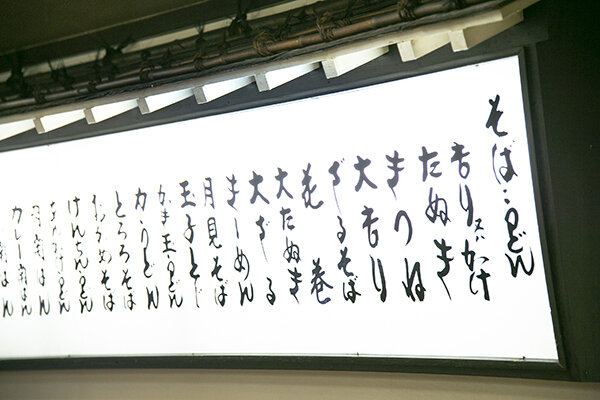 そば・うどん
もり又はかけ
たぬき
きつね
大もり
ざるそば
花巻
大たぬき
大ざる
きしめん
月見そば
玉子とじ
かま玉うどん
力うどん
とろろそば
わかめそば
けんちんうどん
カレー南ばん